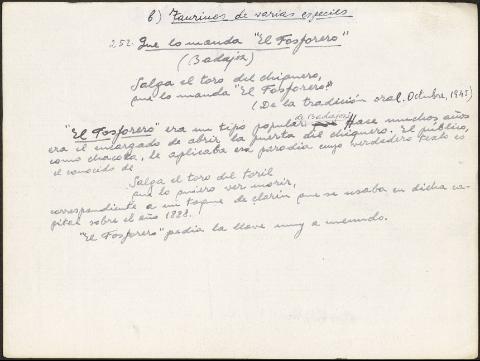 b) Taurinos de varias especies
252. Que lo manda "El Fosforero"
(Badajoz)
Salga el toro del chiquero,
que lo manda "El Fosforero."
(De la tradición oral. Octubre, 1945)
de Badajoz
"El Fosforero" era un tipo popular Hace muchos años
era el encargado de abrir la puerta del chiquero. El público,
como chacota, le aplicaba esa parodia cuyo verdadero texto es
el conocido de
Salga el toro del toril
que lo quiero ver morir,
correspondiente a un toque de clarín que se usaba en dicha ca-
pital sobre el año 1888.
"El Fosforero" pedía la llave muy a menudo.